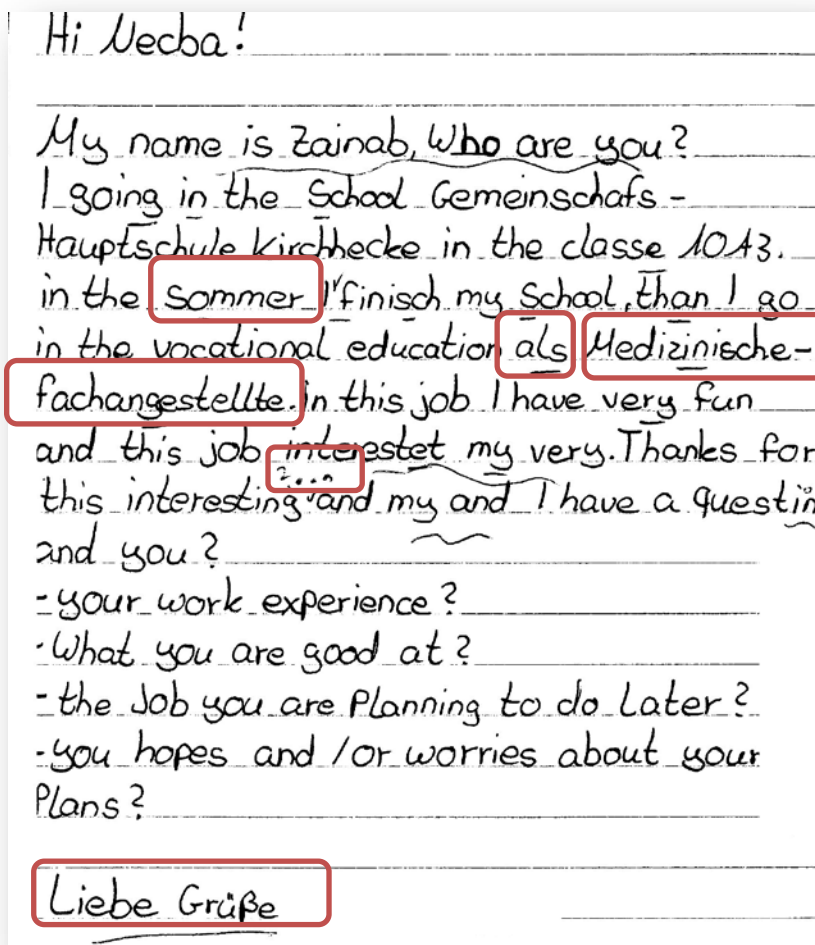 Hi Necba!
My name is Zainab, Who are you?
I going in the School Gemeinschafs-
Hauptschule Kirchhecke in the classe 10A3.
in the Sommer I finisch my School, than I go
in the vocational education als Medizinische-
fachangestellte. in this job I have very fun
and this job interestet my very. Thanks for
?...
this interesting and my and I have a questin
and you?
- your work experience?
- What you are good at?
- the Job you are Planning to do Later?
- you hopes and /or worries about your
Plans?
Liebe Grüße